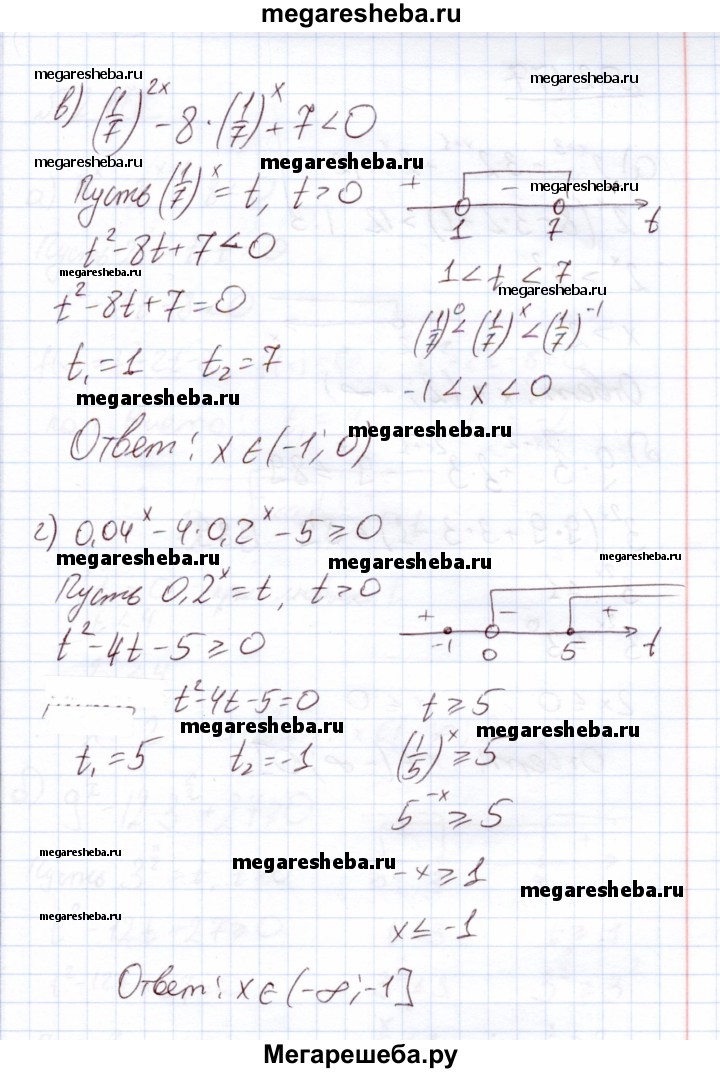 megaresheba.ru
megaresheba.ru megaresheba.ru
в) (1/7)^2x - 8·(1/7)^x + 7 < 0
megaresheba.ru megaresheba.ru
Пусть (1/7)^x = t, t > 0
megaresheba.ru
+ - +
1 7 t
t² - 8t + 7 < 0
1 < t < 7
megaresheba.ru megaresheba.ru
t² - 8t + 7 = 0
(1/7)^0 < (1/7)^x < (1/7)^-1
t₁ = 1 t₂ = 7
-1 < x < 0
megaresheba.ru
Ответ: x ∈ (-1; 0)
megaresheba.ru
г) 0,04^x - 4·0,2^x - 5 ≥ 0
megaresheba.ru megaresheba.ru megaresheba.ru
Пусть 0,2^x = t, t > 0
+ - +
-1 0 5 t
t² - 4t - 5 ≥ 0
t² - 4t - 5 = 0
t ≥ 5
megaresheba.ru megaresheba.ru
t₁ = 5 t₂ = -1
(1/5)^x ≥ 5
5^-x ≥ 5
megaresheba.ru megaresheba.ru
-x ≥ 1
megaresheba.ru
megaresheba.ru
x ≤ -1
Ответ: x ∈ (-∞; -1]
Мегарешеба.ру